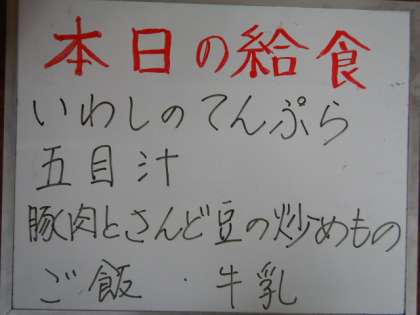 本日の給食
いわしのてんぷら
五目汁
豚肉とさんど豆の炒めもの
ご飯・牛乳